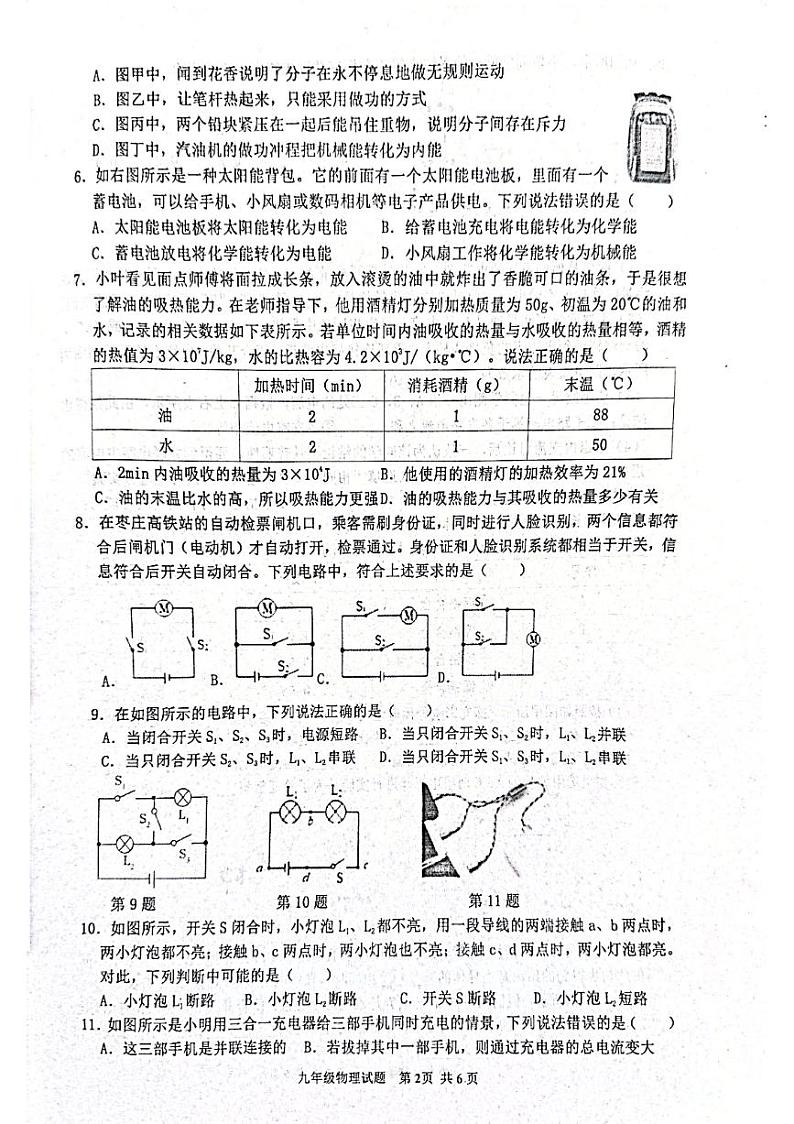 A. 图甲中，闻到花香说明了分子在永不停息地做无规则运动
B. 图乙中，让笔杆热起来，只能采用做功的方式
C. 图丙中，两个铅块紧压在一起后能吊住重物，说明分子间存在斥力
D. 图丁中，汽油机的做功冲程把机械能转化为内能
6. 如右图所示是一种太阳能背包。它的前面有一个太阳能电池板，里面有一个
蓄电池，可以给手机、小风扇或数码相机等电子产品供电。下列说法错误的是（　　）
A. 太阳能电池板将太阳能转化为电能　B. 给蓄电池充电将电能转化为化学能
C. 蓄电池放电将化学能转化为电能　D. 小风扇工作将化学能转化为机械能
7. 小叶看见面点师傅将面拉成长条，放入滚烫的油中就炸出了香脆可口的油条，于是很想
了解油的吸热能力。在老师指导下，他用酒精灯分别加热质量为50g、初温为20℃的油和
水，记录的相关数据如下表所示。若单位时间内油吸收的热量与水吸收的热量相等，酒精
的热值为3×10⁷J/kg，水的比热容为4.2×10³J/（kg•℃）。说法正确的是（　　）
加热时间（min）　消耗酒精（g）　末温（℃）
油　2　1　88
水　2　1　50
A. 2min内油吸收的热量为3×10⁴J　B. 他使用的酒精灯的加热效率为21%
C. 油的末温比水的高，所以吸热能力更强D. 油的吸热能力与其吸收的热量多少有关
8. 在枣庄高铁站的自动检票闸机口，乘客需刷身份证，同时进行人脸识别，两个信息都符
合后闸机门（电动机）才自动打开，检票通过。身份证和人脸识别系统都相当于开关，信
息符合后开关自动闭合。下列电路中，符合上述要求的是（　　）
M　M　M　M
S　S₂　S₁　S₂　S₁　S₂　S₁　S₂
A.　B.　C.　D.
9. 在如图所示的电路中，下列说法正确的是（　　）
A. 当闭合开关S₁、S₂、S₃时，电源短路　B. 当只闭合开关S₁、S₂时，L₁、L₂并联
C. 当只闭合开关S₂、S₃时，L₁、L₂串联　D. 当只闭合开关S₁、S₃时，L₁、L₂串联
S₁　L₁　S₂　L₂　S₃
L₁　L₂　b　a　d　S　c
第9题　第10题　第11题
10. 如图所示，开关S闭合时，小灯泡L₁、L₂都不亮，用一段导线的两端接触a、b两点时，
两小灯泡都不亮；接触b、c两点时，两小灯泡也不亮；接触c、d两点时，两小灯泡都亮。
对此，下列判断中可能的是（　　）
A. 小灯泡L₁断路　B. 小灯泡L₂断路　C. 开关S断路　D. 小灯泡L₂短路
11. 如图所示是小明用三合一充电器给三部手机同时充电的情景，下列说法错误的是（　　）
A. 这三部手机是并联连接的　B. 若拔掉其中一部手机，则通过充电器的总电流变大
九年级物理试题　第2页　共6页